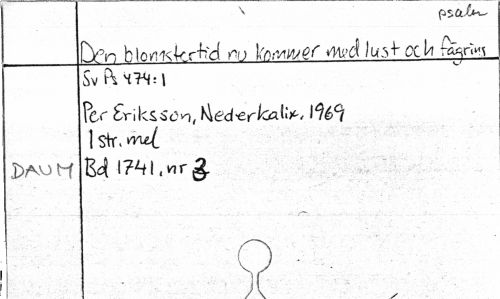 psalm
Den blomstertid nu kommer med lust och fägring
Sv Ps 474:1
Per Eriksson, Nederkalix, 1969
1 str. mel
DAUM Bd 1741, nr 3